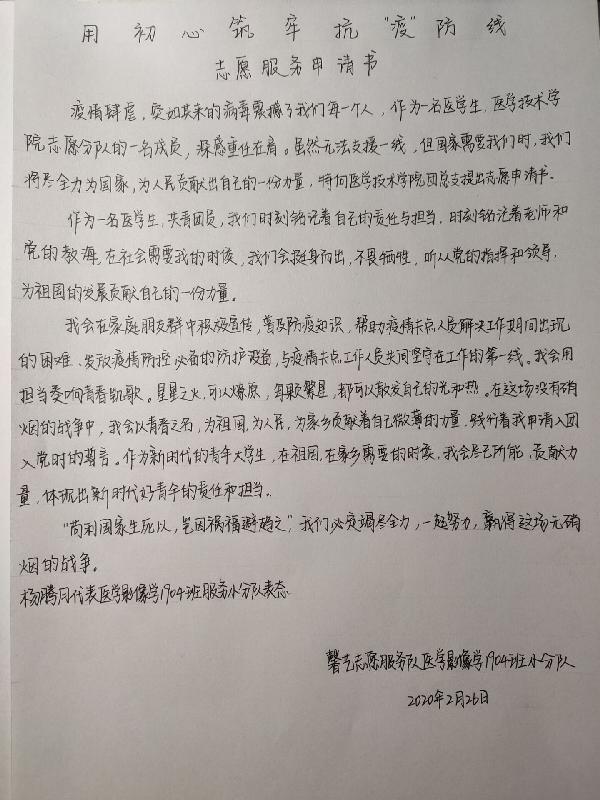 用初心筑牢抗"疫"防线
志愿服务申请书
疫情肆虐，突如其来的病毒震撼了我们每一个人，作为一名医学生，医学技术学
院志愿分队的一名成员，深感重任在肩。虽然无法支援一线，但国家需要我们时，我们
将尽全力为国家，为人民贡献出自己的一份力量，特向医学技术学院团总支提出志愿申请书。
作为一名医学生，共青团员，我们时刻铭记着自己的责任与担当，时刻铭记着老师和
党的教诲，在社会需要我的时候，我们会挺身而出，不畏牺牲，听从党的指挥和领导，
为祖国的发展贡献自己的一份力量。
我会在家庭朋友群中积极宣传，普及防疫知识，帮助疫情卡点人员解决工作期间出现
的困难、发放疫情防控必备的防护设备，与疫情卡点工作人员共同坚守在工作的第一线。我会用
担当奏响青春凯歌。星星之火，可以燎原，每颗繁星，都可以散发自己的光和热。在这场没有硝
烟的战争中，我会以青春之名，为祖国，为人民，为家乡贡献着自己微薄的力量，践行着我申请入团
入党时的誓言。作为新时代的青年大学生，在祖国，在家乡需要的时候，我会尽己所能，贡献力
量，体现出新时代好青年的责任和担当。
"苟利国家生死以，岂因祸福避趋之"，我们必须竭尽全力，一起努力，赢得这场无硝
烟的战争。
杨腾月代表医学影像学1904班服务小分队表态
馨艺志愿服务队医学影像学1904班小分队
2020年2月26日